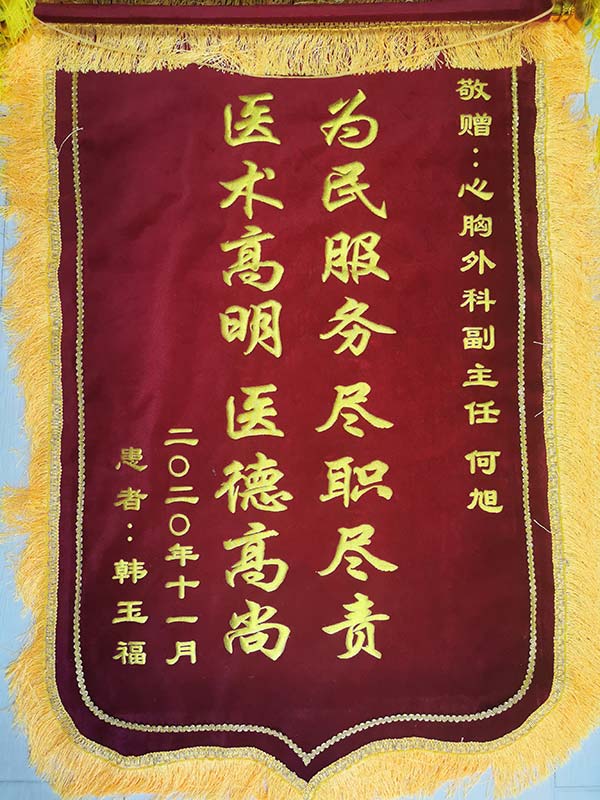 敬赠：心胸外科副主任 何旭
为民服务 尽职尽责
医术高明 医德高尚
二〇二〇年十一月
患者：韩玉福